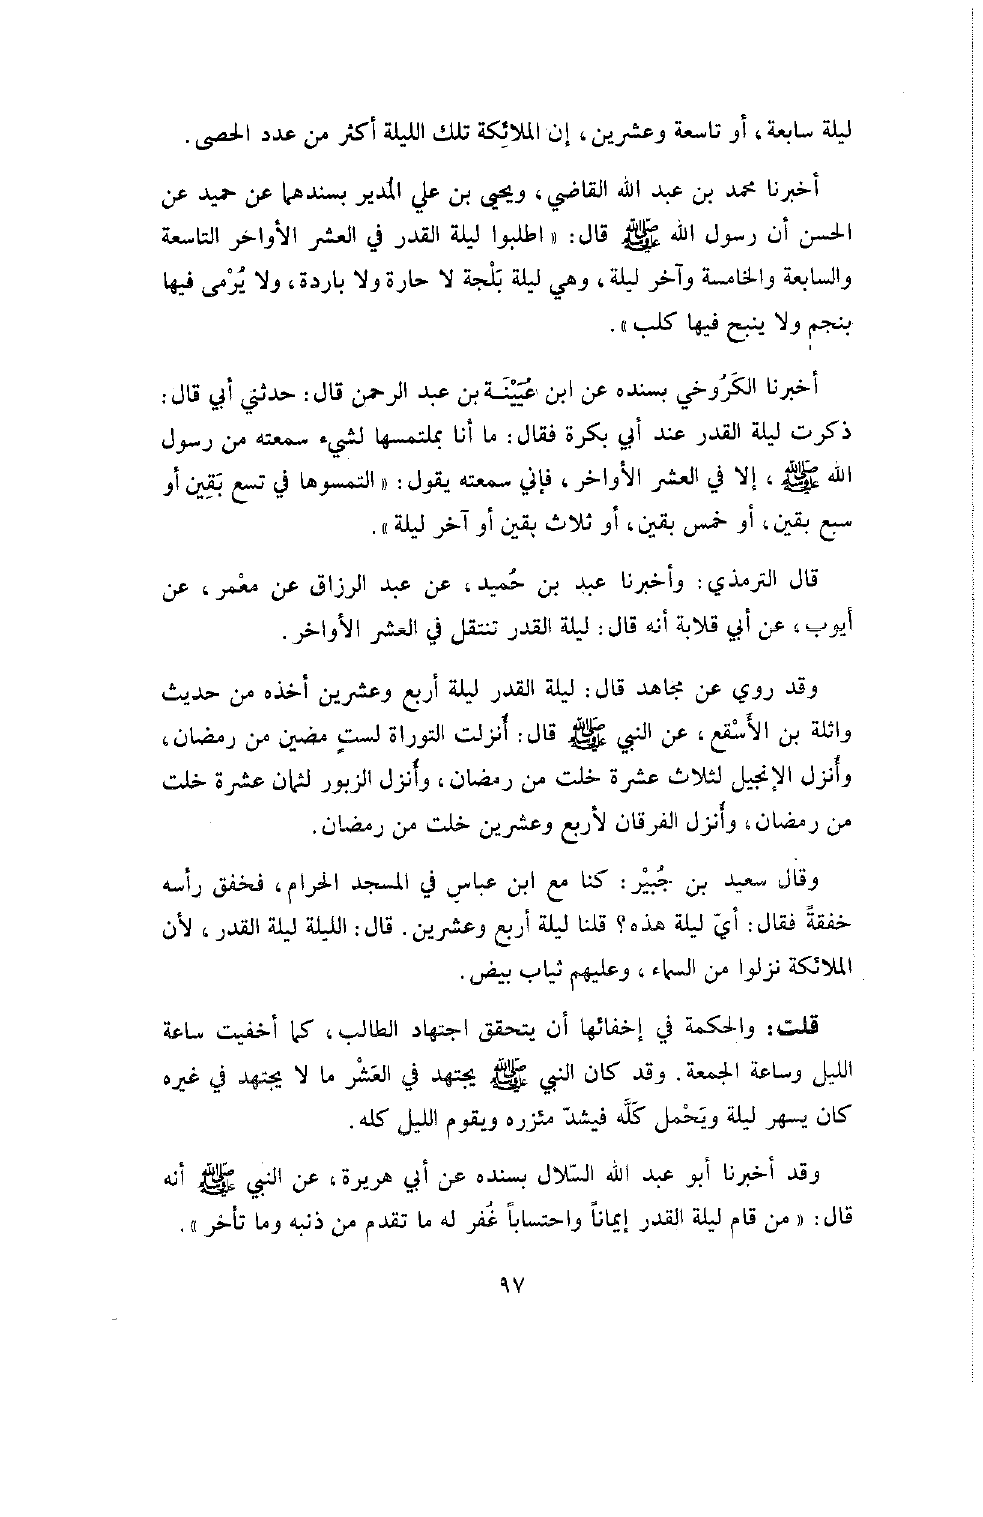 ليلة سابعة، أو تاسعة وعشرين، إن الملائِكة تلك الليلة أكثر من عدد الحصى.
أخبرنا محمد بن عبد الله القاضي، ويحيى بن علي المُدير بسندهما عن حميد عن
الحسن أن رسول الله ﷺ قال: « اطلبوا ليلة القدر في العشر الأواخر التاسعة
والسابعة والخامسة وآخر ليلة، وهي ليلة بَلْجة لا حارة ولا باردة، ولا يُرْمى فيها
بنجم ولا ينبح فيها كلب ».
أخبرنا الكَرُوخي بسنده عن ابن عُيَيْنَة بن عبد الرحمن قال: حدثني أبي قال:
ذكرت ليلة القدر عند أبي بكرة فقال: ما أنا بملتمسها لشيء سمعته من رسول
الله ﷺ، إلا في العشر الأواخر، فإني سمعته يقول: « التمسوها في تسع بَقِين أو
سبع بقين، أو خمس بقين، أو ثلاث بقين أو آخر ليلة ».
قال الترمذي: وأخبرنا عبد بن حُميد، عن عبد الرزاق عن معْمر، عن
أيوب، عن أبي قلابة أنه قال: ليلة القدر تنتقل في العشر الأواخر.
وقد روي عن مجاهد قال: ليلة القدر ليلة أربع وعشرين أخذه من حديث
واثلة بن الأَسْقع، عن النبي ﷺ قال: أُنزلت التوراة لستٍ مضين من رمضان،
وأُنزل الإنجيل لثلاث عشرة خلت من رمضان، وأُنزل الزبور لثمان عشرة خلت
من رمضان، وأُنزل الفرقان لأربع وعشرين خلت من رمضان.
وقال سعيد بن جُبيْر: كنا مع ابن عباس في المسجد الحرام، فخفق رأسه
خفقةً فقال: أيّ ليلة هذه؟ قلنا ليلة أربع وعشرين. قال: الليلة ليلة القدر، لأن
الملائكة نزلوا من السماء، وعليهم ثياب بيض.
قلت: والحكمة في إخفائها أن يتحقق اجتهاد الطالب، كما أخفيت ساعة
الليل وساعة الجمعة. وقد كان النبي ﷺ يجتهد في العَشْر ما لا يجتهد في غيره
كان يسهر ليلة ويَحْمل كَلَّه فيشدّ مئزره ويقوم الليل كله.
وقد أخبرنا أبو عبد الله السّلال بسنده عن أبي هريرة، عن النبي ﷺ أنه
قال: « من قام ليلة القدر إيماناً واحتساباً غُفر له ما تقدم من ذنبه وما تأخر ».
٩٧